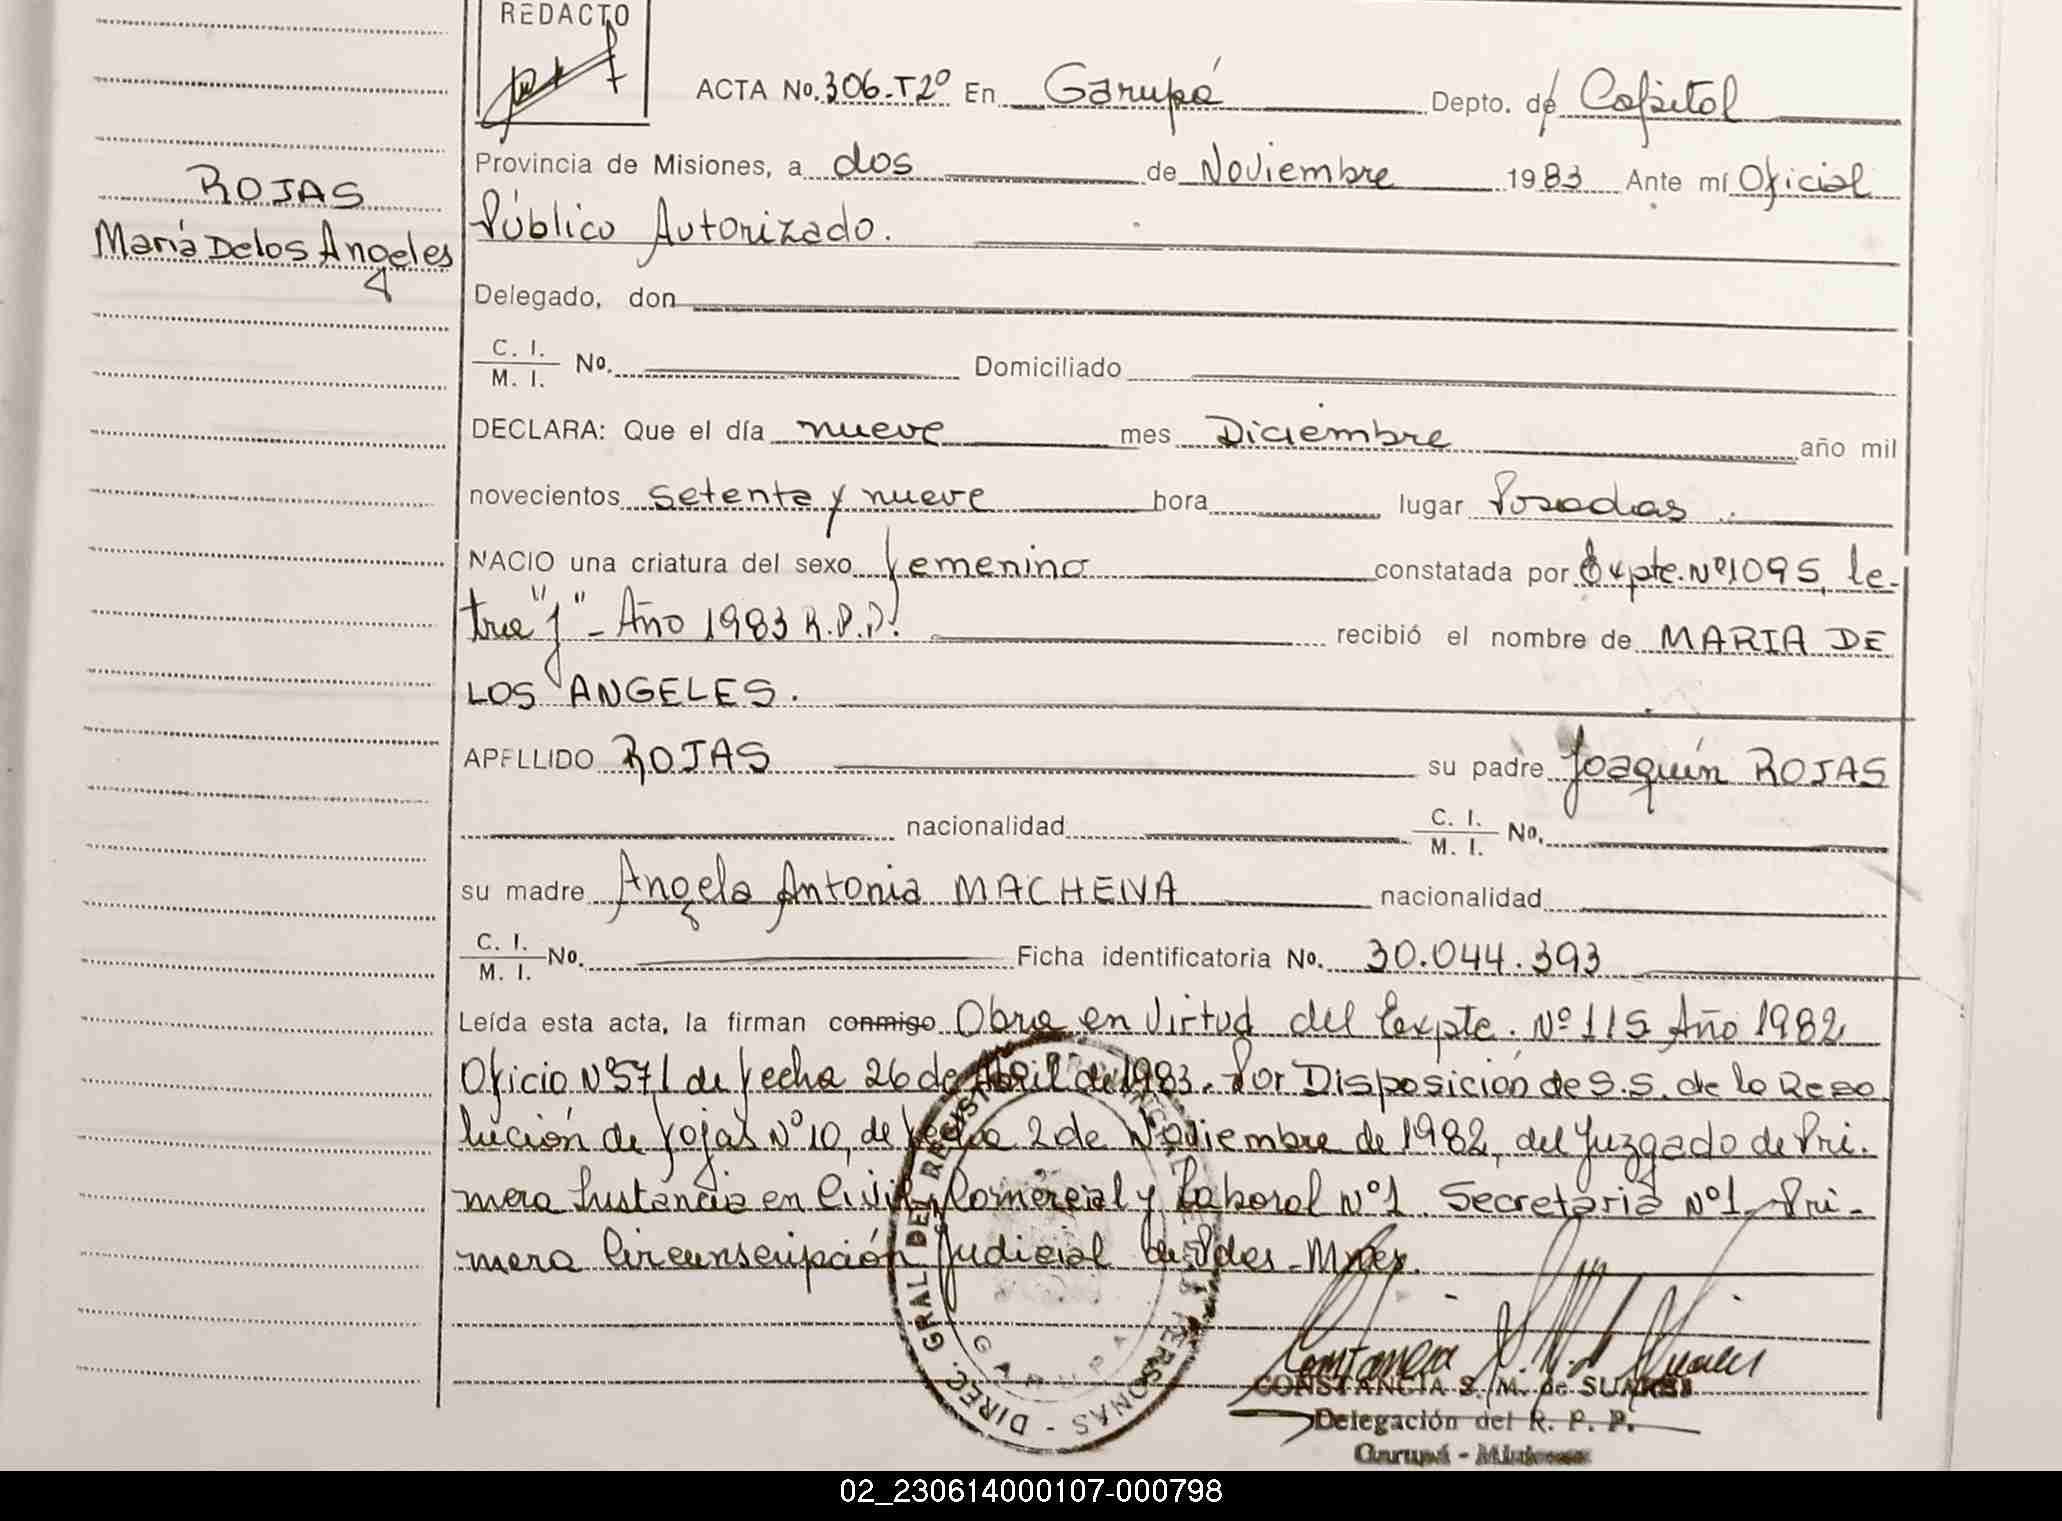 REDACTO
ACTA No. 306-T2º En Garupá Depto. de Capital
Provincia de Misiones, a dos de Noviembre 1983 Ante mí Oficial
Público Autorizado.
ROJAS
María De los Angeles
Delegado, don
C. I.
M. I. No. Domiciliado
DECLARA: Que el día nueve mes Diciembre año mil
novecientos setenta y nueve hora lugar Posadas.
NACIO una criatura del sexo femenino constatada por Expte. Nº 1095, le-
tra "J" - Año 1983 R.P.P. recibió el nombre de MARIA DE
LOS ANGELES.
APELLIDO ROJAS su padre Joaquín ROJAS
nacionalidad C. I. M. I. No.
su madre Angela Antonia nacionalidad
C. I. M. I. No. Ficha identificatoria No. 30.044.393
Leída esta acta, la firman conmigo Obra en Virtud del Expte. Nº 115 Año 1982
Oficio Nº 571 de fecha 26 de Abril de 1983. Por Disposición de S.S. de la Reso
lución de fojas Nº 10, de fecha 2 de Noviembre de 1982, del Juzgado de Pri.
mera Instancia en Civil, Comercial y Laboral Nº 1. Secretaria Nº 1. Pri-
mera Circunscripción Judicial de Pdas - Mnes.
DIREC. GRAL DEL REGIST PERSONAS
GARUPA
CONSTANCIA S. M. de SUAREZ
Delegación del R. P. P.
Garupá - Misiones
02_230614000107-000798